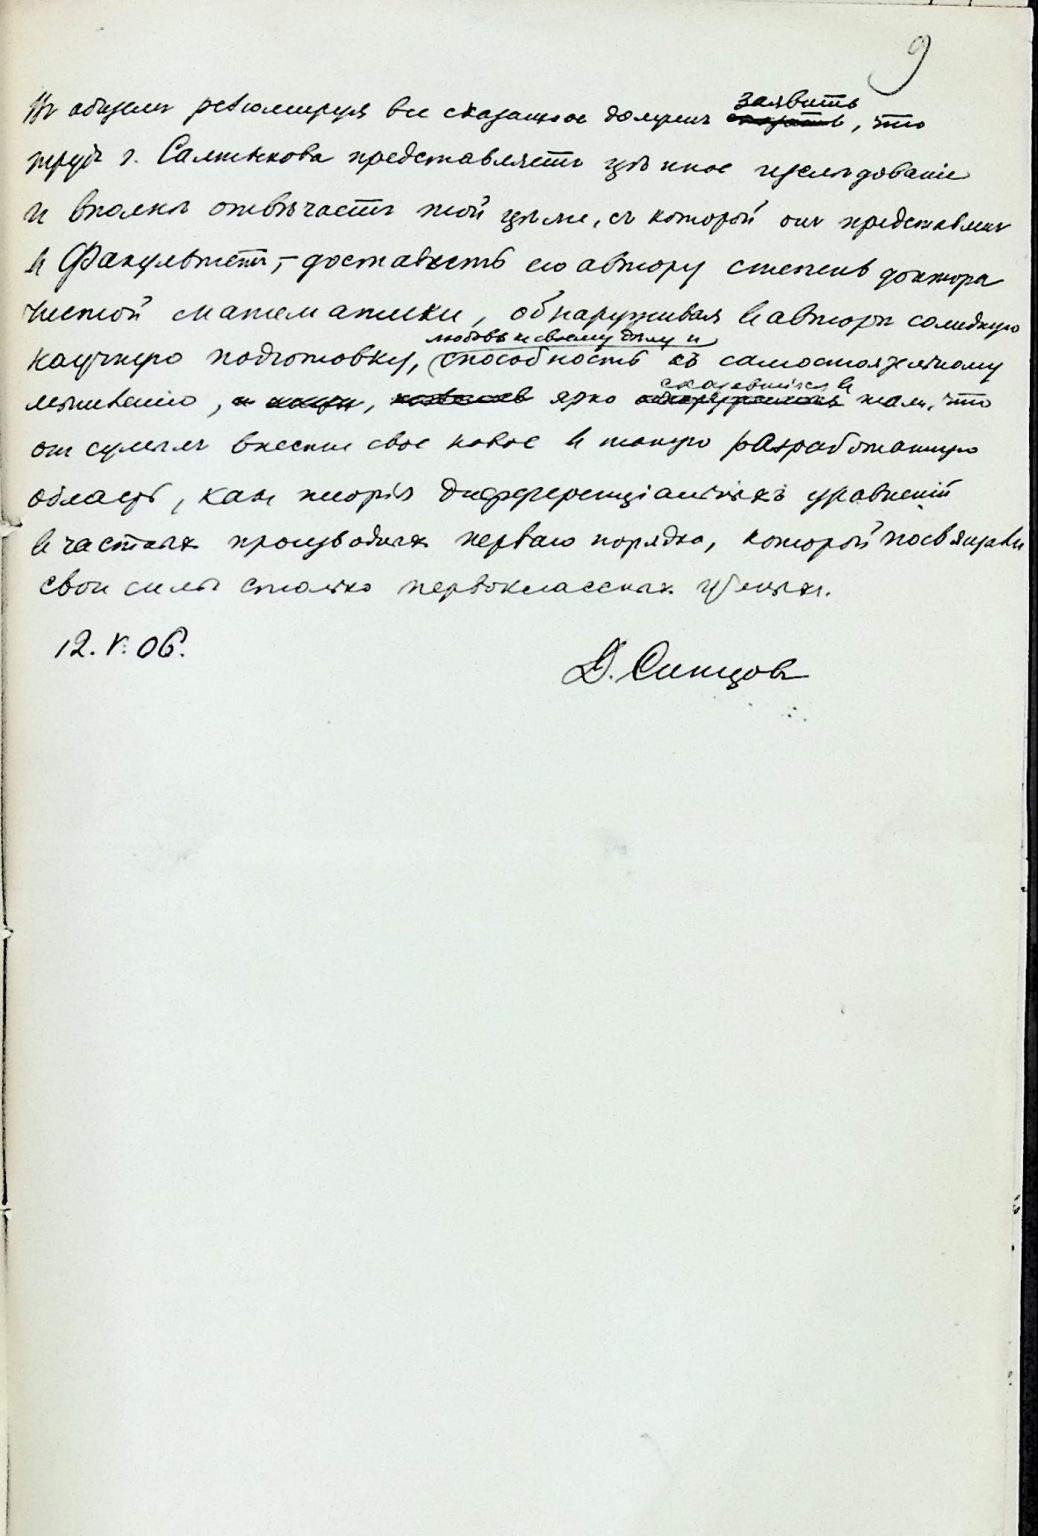 9
Въ общемъ резюмируя все сказанное долженъ заявить, что
трудъ г. Салтыкова представляетъ цѣнное изслѣдованіе
и вполнѣ отвѣчаетъ той цѣли, съ которой онъ представленъ
въ Факультетъ, – доставить его автору степень доктора
чистой математики, обнаруживая въ авторѣ солидную
научную подготовку, любовь къ своему дѣлу и способность къ самостоятельному
мышленію, ярко сказавшіяся въ томъ, что
онъ сумѣлъ внести свое новое въ такую разработанную
область, какъ теорія дифференціальныхъ уравненій
въ частныхъ производныхъ перваго порядка, которой посвящали
свои силы столько первоклассныхъ ученыхъ.
12. V. 06.
Д. Синцовъ